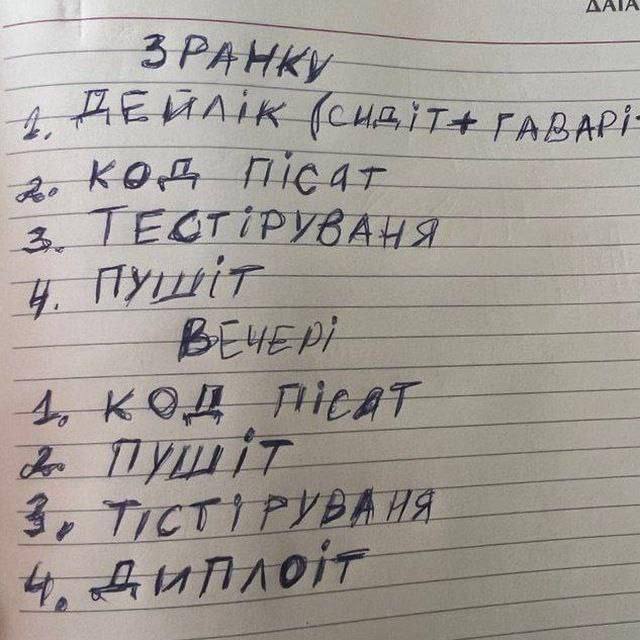 ДАТА
ЗРАНКУ
1. ДЕЙЛІК (СИДІТ + ГАВАРІТ
2. КОД ПІСАТ
3. ТЕСТІРУВАНЯ
4. ПУШІТ
ВЕЧЕРІ
1. КОД ПІСАТ
2. ПУШІТ
3. ТІСТІРУВАНЯ
4. ДИПЛОІТ